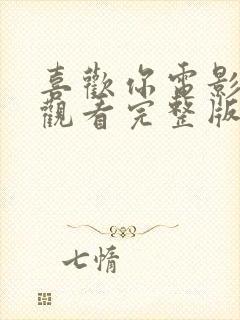 喜歡你電影
觀看完整版
七情